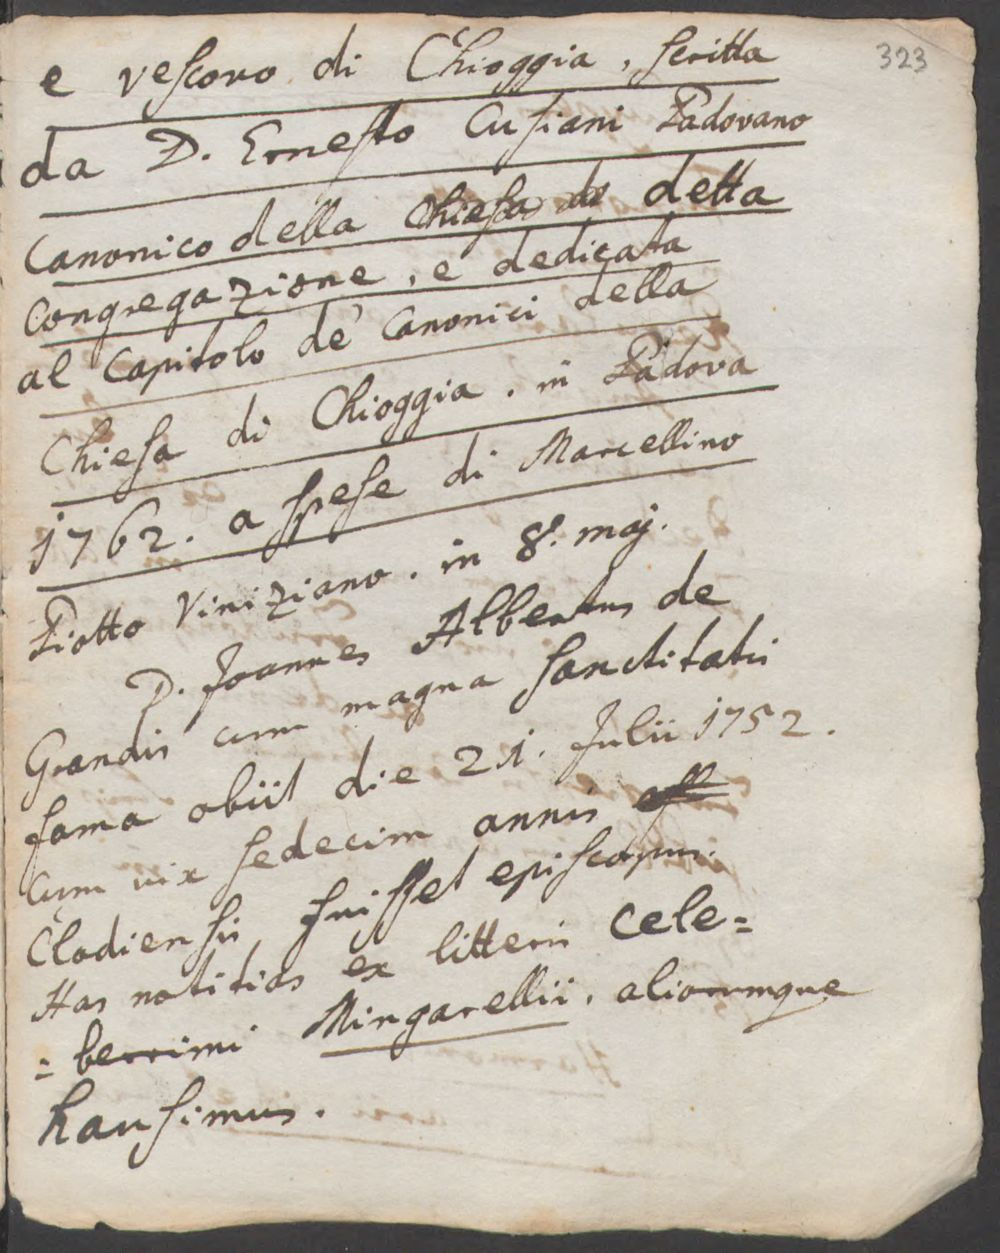 323
e vescovo di Chioggia, scritta
da D. Ernesto Cusiani Padovano
Canonico della Chiesa di detta
Congregazione, e dedicata
al Capitolo de' Canonici della
Chiesa di Chioggia. in Padova
1762. a spese di Marcellino
Piotto Viniziano. in 8º. maj.
D. Joannes Albertus de
Grandis cum magna sanctitatis
fama obiit die 21. Julii 1752.
Cum vix sedecim annis
Clodiensis fuisset episcopus.
Has notitias ex litteris cele=
=berrimi Mingarellii, aliorumque
hausimus.